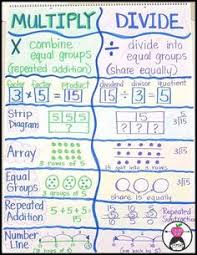 MULTIPLY
DIVIDE
X combine
equal groups
(repeated addition)
÷ divide into
equal groups
(share equally)
factor factor product
3 x 5 = 15
dividend divisor quotient
15 ÷ 3 = 5
3)15
Strip
Diagram
5 5 5
15
15
? ? ?
Array
3 rows of 5
15 split into 3 rows
Equal
Groups
3 groups of 5
share 15 equally
Repeated
Addition
5+5+5=
15
Repeated
Subtraction
Number
Line